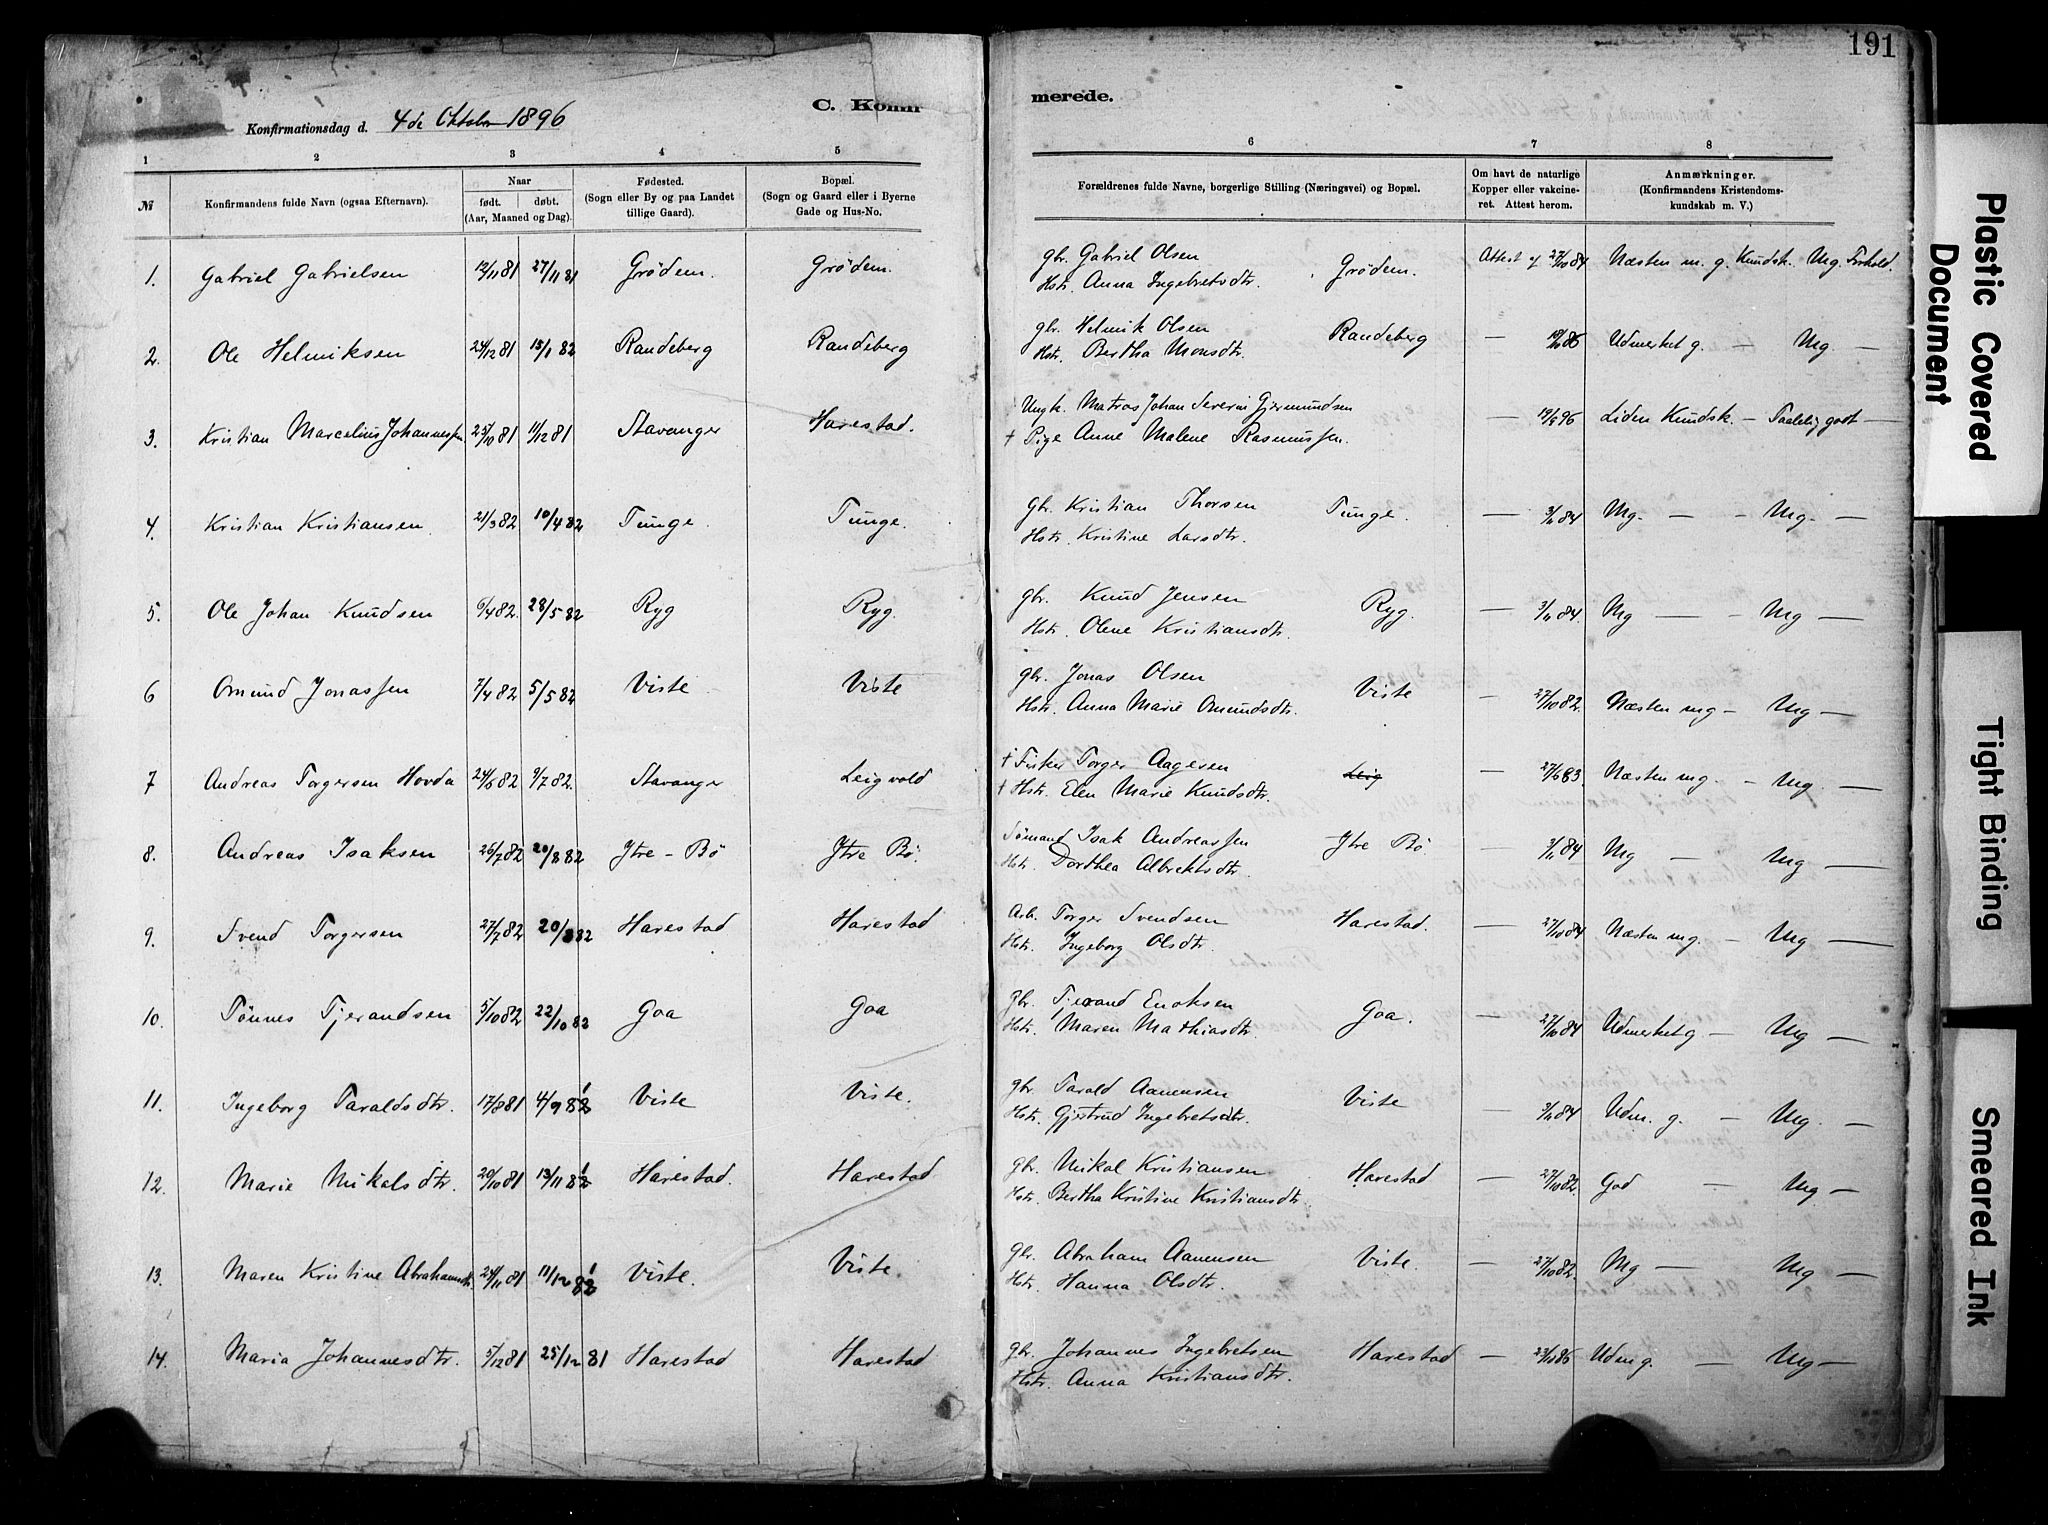 191
C. Konfir
merede.
Konfirmationsdag d. 4de Oktober 1896
1 2 3 4 5 6 7 8
№ Konfirmandens fulde Navn (ogsaa Efternavn). Naar født. døbt. (Aar, Maaned og Dag). Fødested. (Sogn eller By og paa Landet tillige Gaard). Bopæl. (Sogn og Gaard eller i Byerne Gade og Hus-No. Forældrenes fulde Navne, borgerlige Stilling (Næringsvei) og Bopæl. Om havt de naturlige Kopper eller vakcineret. Attest herom. Anmærkninger. (Konfirmandens Kristendomskundskab m. V.)
1. Gabriel Gabrielsen 12/11 81 27/11 81 Grödem. Grödem. gbr. Gabriel Olsen Grödem. Attest af 27/10 84 Næsten m. g. Kundsk. Mg. Forhold.
Hstr. Anna Ingebretsdtr.
2. Ole Helmiksen 24/12 81 15/1 82 Randeberg Randeberg gbr. Helmik Olsen Randeberg — 86 Udmerket g. — Mg —
Hstr. Bertha Monsdtr.
3. Kristian Marcelius Johannessen 25/10 81 11/12 81 Stavanger Harestad. Ungk. Matros Johan Severin Gjermundsen — 19/9 96 Liden Kundsk. — Taalelig godt —
† Pige Anne Malene Rasmussen.
4. Kristian Kristiansen. 21/3 82 10/4 82 Tunge. Tunge. Gbr. Kristian Thorsen Tunge. — 3/11 84 Mg. — - Mg. —
Hstr. Kristine Larsdtr.
5. Ole Johan Knudsen 6/4 82. 28/5 82 Ryg Ryg. gbr. Knud Jensen Ryg. — 3/11 84. Mg — - Mg —
Hstr. Olene Kristiansdtr.
6 Omund Jonassen 7/4 82 5/5 82 Viste Viste gbr. Jonas Olsen Viste - 27/10 82. Næsten mg — Mg —
Hstr. Anna Marie Omundsdtr.
7 Andreas Torgersen Hovda 24/6 82 9/7 82. Stavanger Leigvold † Fisker Torger Aagesen Leig — 27/6 83. Næsten mg. — Mg. —
† Hstr. Elen Marie Knudsdtr.
8. Andreas Isaksen 26/7 82 20/8 82 Ytre - Bö Ytre Bö. Sömand Isak Andreassen Ytre Bö. — 3/11 84 Mg — Mg —
Hstr. Dorthea Albrektsdtr.
9. Svend Torgersen 27/7 82 20/8 82 Harestad Harestad Arb. Torger Svendsen Harestad. — 27/10 84 Næsten mg. — Mg —
Hstr. Ingeborg Olsdtr.
10. Tönnes Tjerandsen 5/10 82 22/10 82 Goa Goa Gbr. Tjerand Enoksen Goa. — 27/10 84 Udmerket g — Mg —
Hstr. Maren Mathiasdtr.
11. Ingeborg Taraldsdtr. 17/8 81 4/9 81 Viste Viste. gbr Tarald Aanensen Viste — 3/11 84 Udm. g. — Mg. —
Hstr. Gjertrud Ingebretsdtr.
12. Marie Mikalsdtr. 20/10 81 13/11 81 Harestad. Harestad. gbr. Mikal Kristiansen Harestad — 27/10 82. God — Mg —
Hstr. Bertha Kristine Kristiansdtr.
13. Maren Kristine Abrahamsdtr. 24/11 81 11/12 81 Viste. Viste. gbr. Abraham Aanensen Viste. — 27/10 82. Mg — Mg —
Hstr. Hanna Olsdtr.
14. Maria Johannesdtr. 5/12 81 25/12 81 Harestad Harestad gbr. Johannes Ingebretsen Harestad — 86 Udm g. — Mg —
Hstr. Anna Kristiansdtr.
Plastic Covered Document
Tight Binding
Smeared Ink